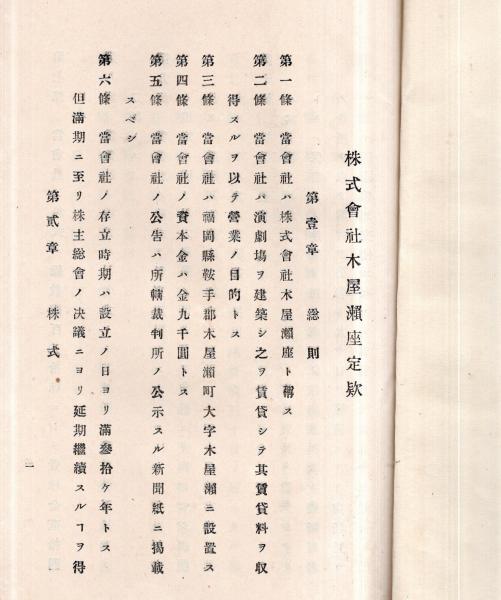 株式會社木屋瀨座定欵
第壹章　總則
第一條　當會社ハ株式會社木屋瀨座ト稱ス
第二條　當會社ハ演劇場ヲ建築シ之ヲ賃貸シテ其賃貸料ヲ収
得スルヲ以テ營業ノ目的トス
第三條　當會社ハ福岡縣鞍手郡木屋瀨町大字木屋瀨ニ設置ス
第四條　當會社ノ資本金ハ金九千圓トス
第五條　當會社ノ公告ハ所轄裁判所ノ公示スル新聞紙ニ揭載
スベシ
第六條　當會社ノ存立時期ハ設立ノ日ヨリ滿參拾ケ年トス
但滿期ニ至リ株主總會ノ决議ニヨリ延期繼續スルヿヲ得
第貳章　株式
一